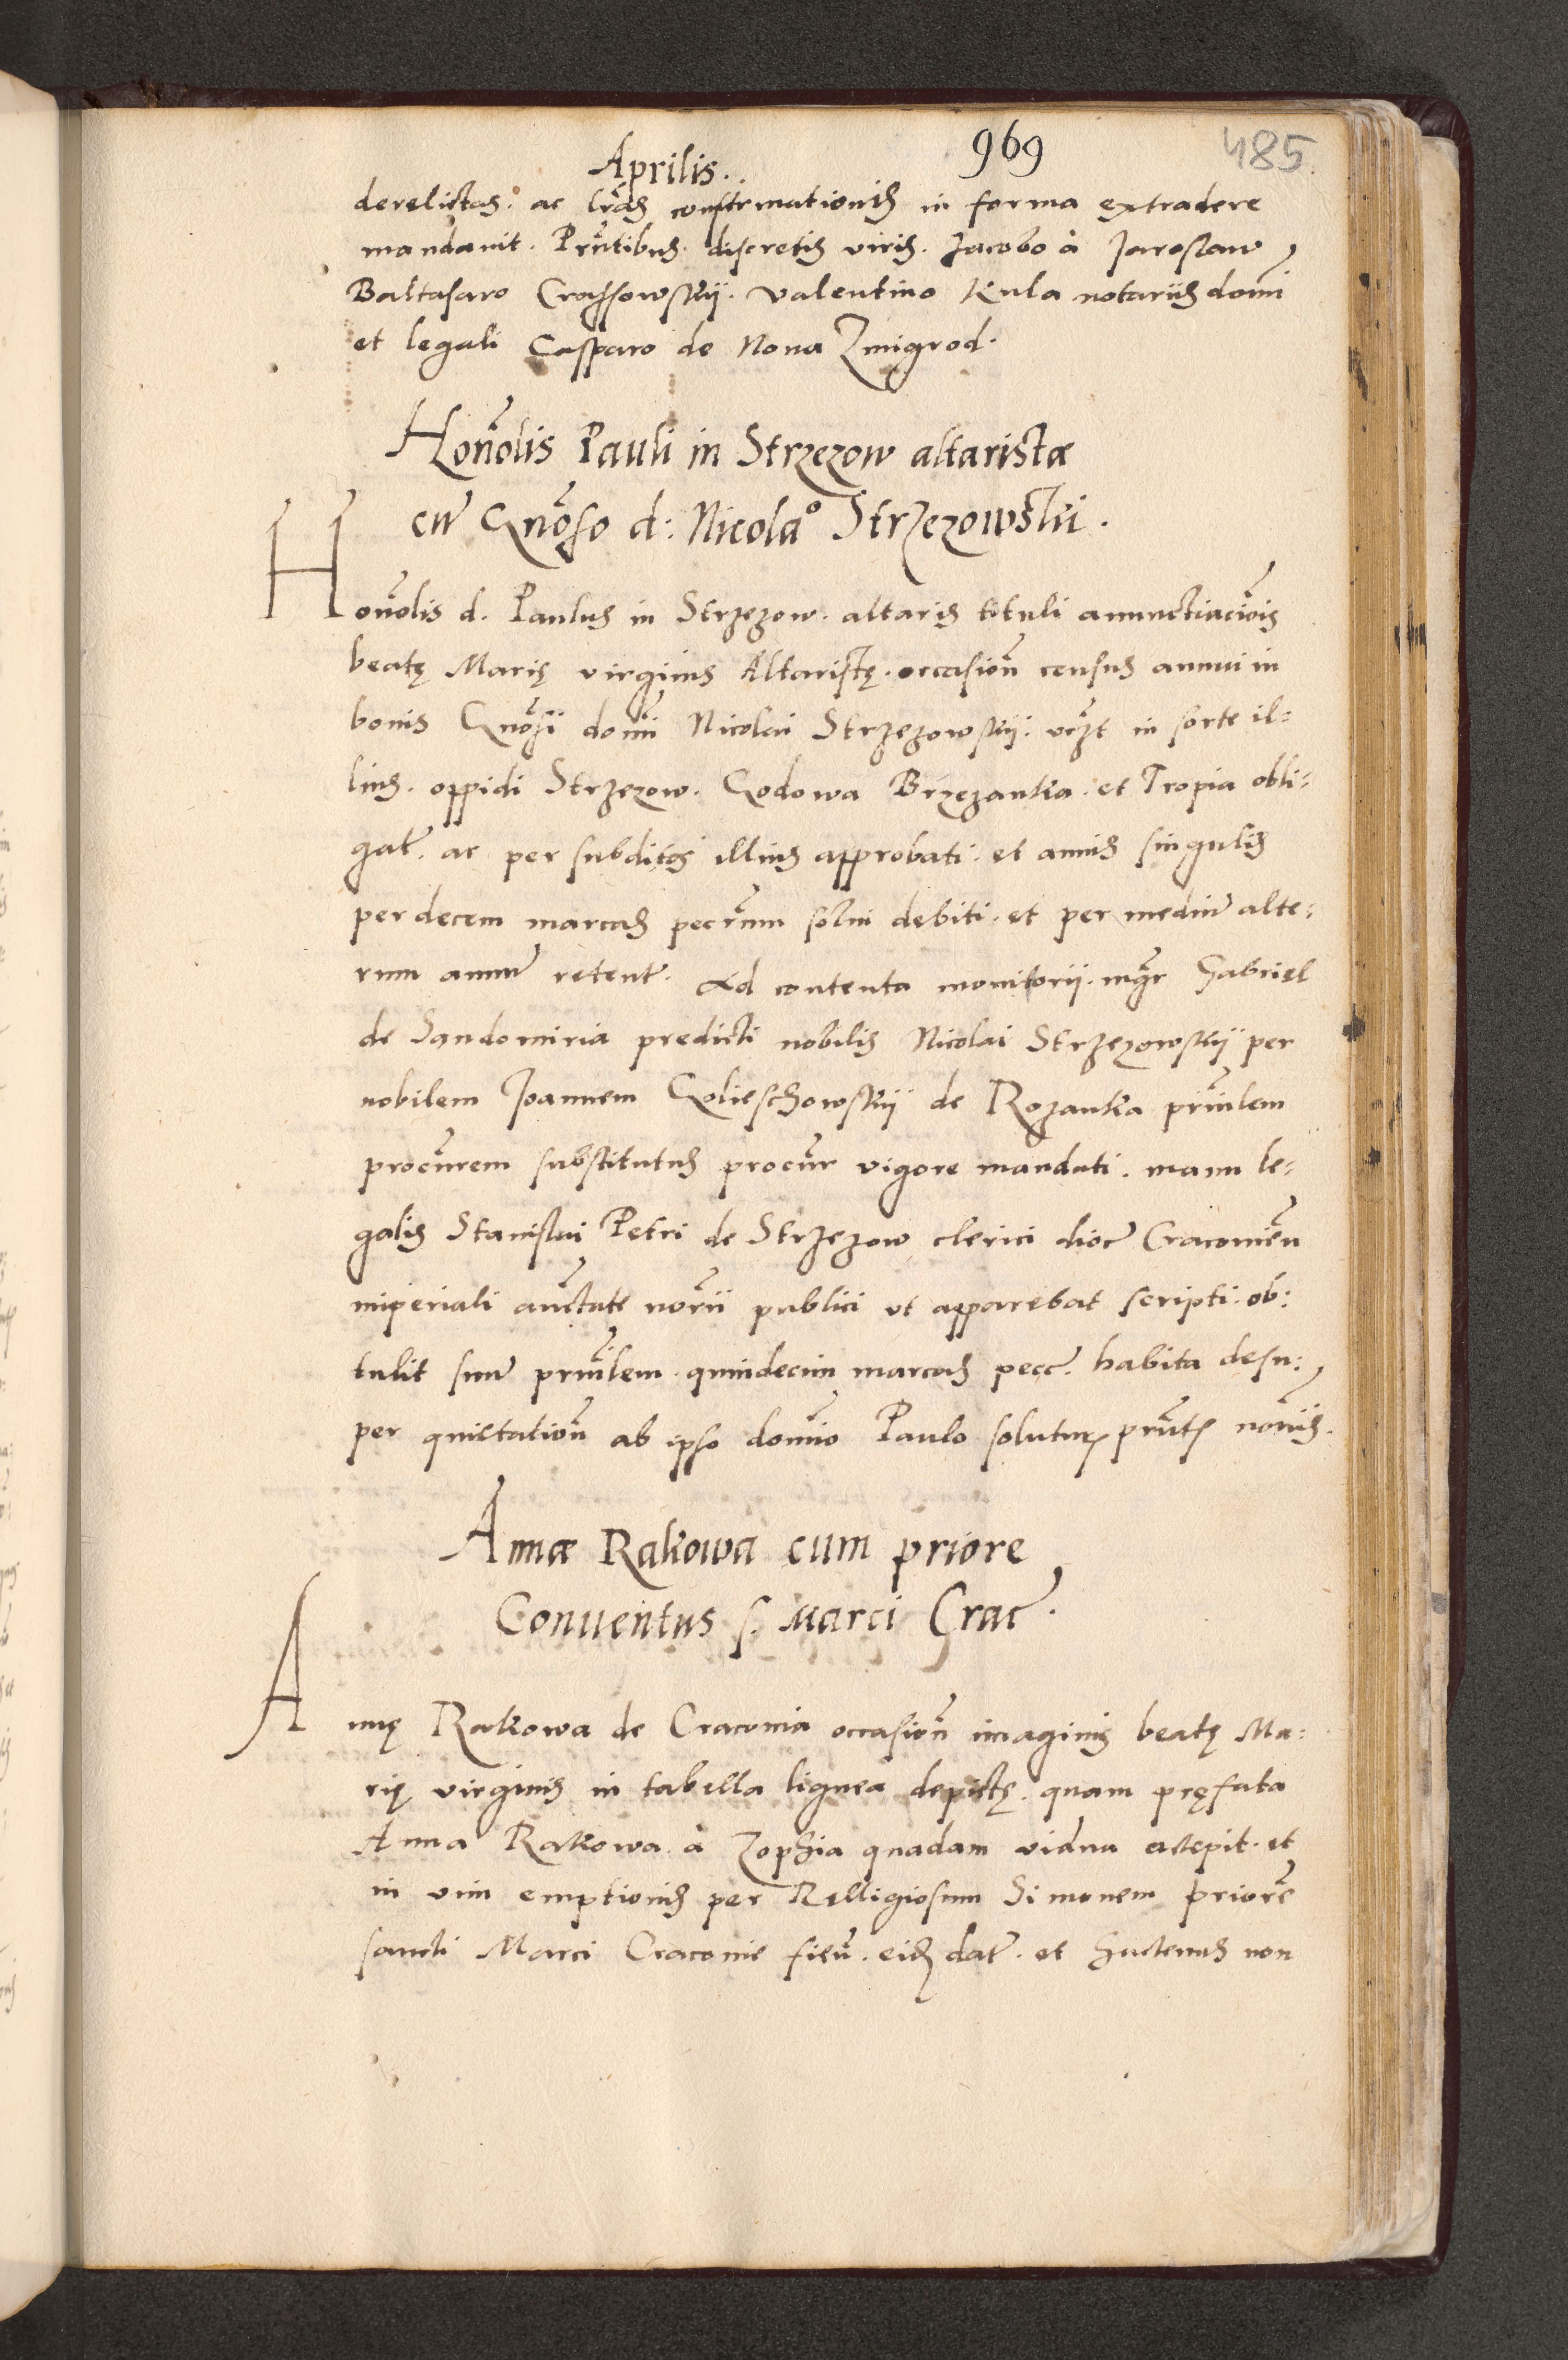 969
485
Aprilis.
derelictas. ac lr̃as confirmationis in forma extradere
mandavit. Pr̃ntibus discretis viris. Jacobo à Jaroslaw
Baltasaro Crassowskij. Valentino Kula notariis domi
et legali Casparo de Nova Zmigrod.
Honor̃lis Pauli in Strzezow altaristæ
cũ Gnõso d: Nicolaº Strzezowski.
Honor̃lis d. Paulus in Strzezow. altaris tituli anunctiaciõis
beatę Marię virginis Altaristę. occasioñ census annui in
bonis Gnõsi domi Nicolai Strzezowskij. vczt in sorte il=
lius. oppidi Strzezow. Godowa Brzezanka. et Tropia obli=
gat̃. ac per subditos illius approbati. et annis singulis
per decem marcas pecr̃um solui debiti. et per mediũ alte=
rum annũ retent̃. Ad contenta monitorii. mgr̃ Gabriel
de Sandomiria predicti nobilis Nicolai Strzezowskij per
nobilem Joannem Golieschowskij de Rozanka prin̄lem
procũrem substitutus procũr vigore mandati. manu le=
galis Stanislai Petri de Strzezow clerici dioc̃ Cracovieñ
imperiali auctate norii publici ut apparebat scripti. ob=
tulit suũ prin̄lem. quindecim marcas pecc̃. habita desu=
per quictatioñ ab ipso domĩo Paulo soluturꝫ pr̃ntꝭ noñiis.
Annæ Rakowa cum priore
Conventus s. Marci Crac̃.
Annę Rakowa de Cracovia occasioñ imaginis beatę Ma=
rię virginis in tabella lignea depictę. quam pręfata
Anna Rakowa à Zophia quadam vidua accepit. et
in vim emptionis per Relligiosum Simonem priorẽ
sancti Marci Cracovie fieñ. eidꝫ dat̃. et hactenus non